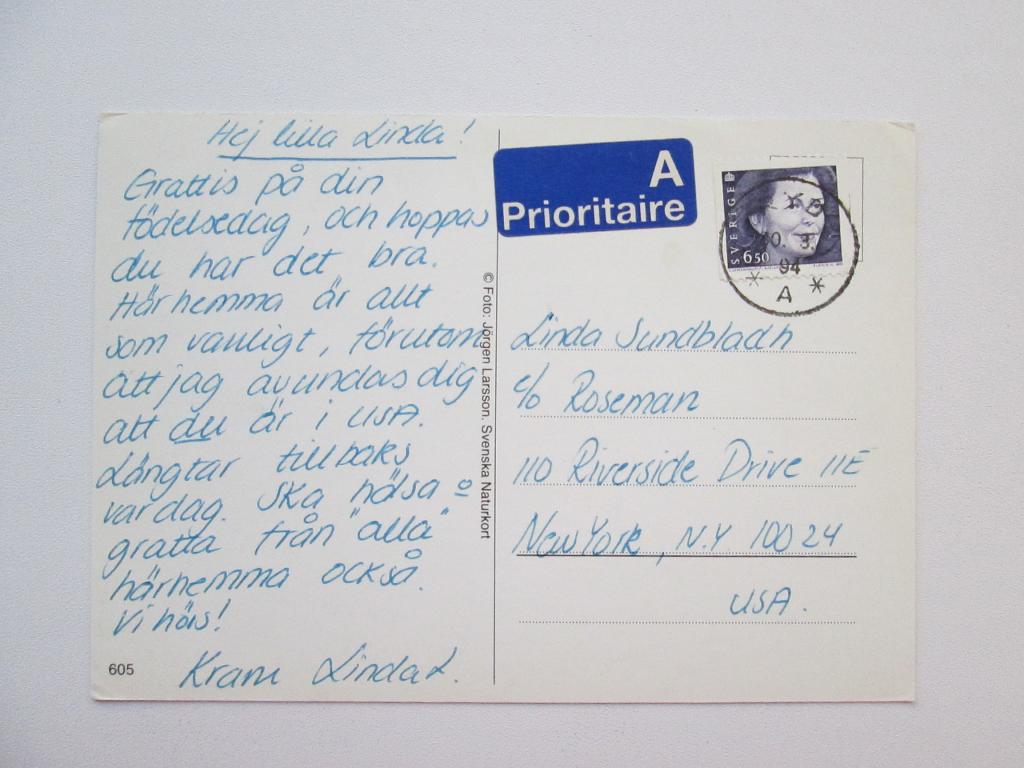 Hej lilla Linda!
Grattis på din
födelsedag, och hoppas
du har det bra.
Här hemma är allt
som vanligt, förutom
att jag avundas dig
att du är i USA.
Längtar tillbaks
var dag. Ska hälsa o
gratta från "alla"
härhemma också.
Vi hörs!
Kram Linda L.
605
© Foto: Jörgen Larsson. Svenska Naturkort
A
Prioritaire
SVERIGE
6.50
94
A
Linda Sundbladh
c/o Roseman
110 Riverside Drive 11E
New York, N.Y. 10024
USA.